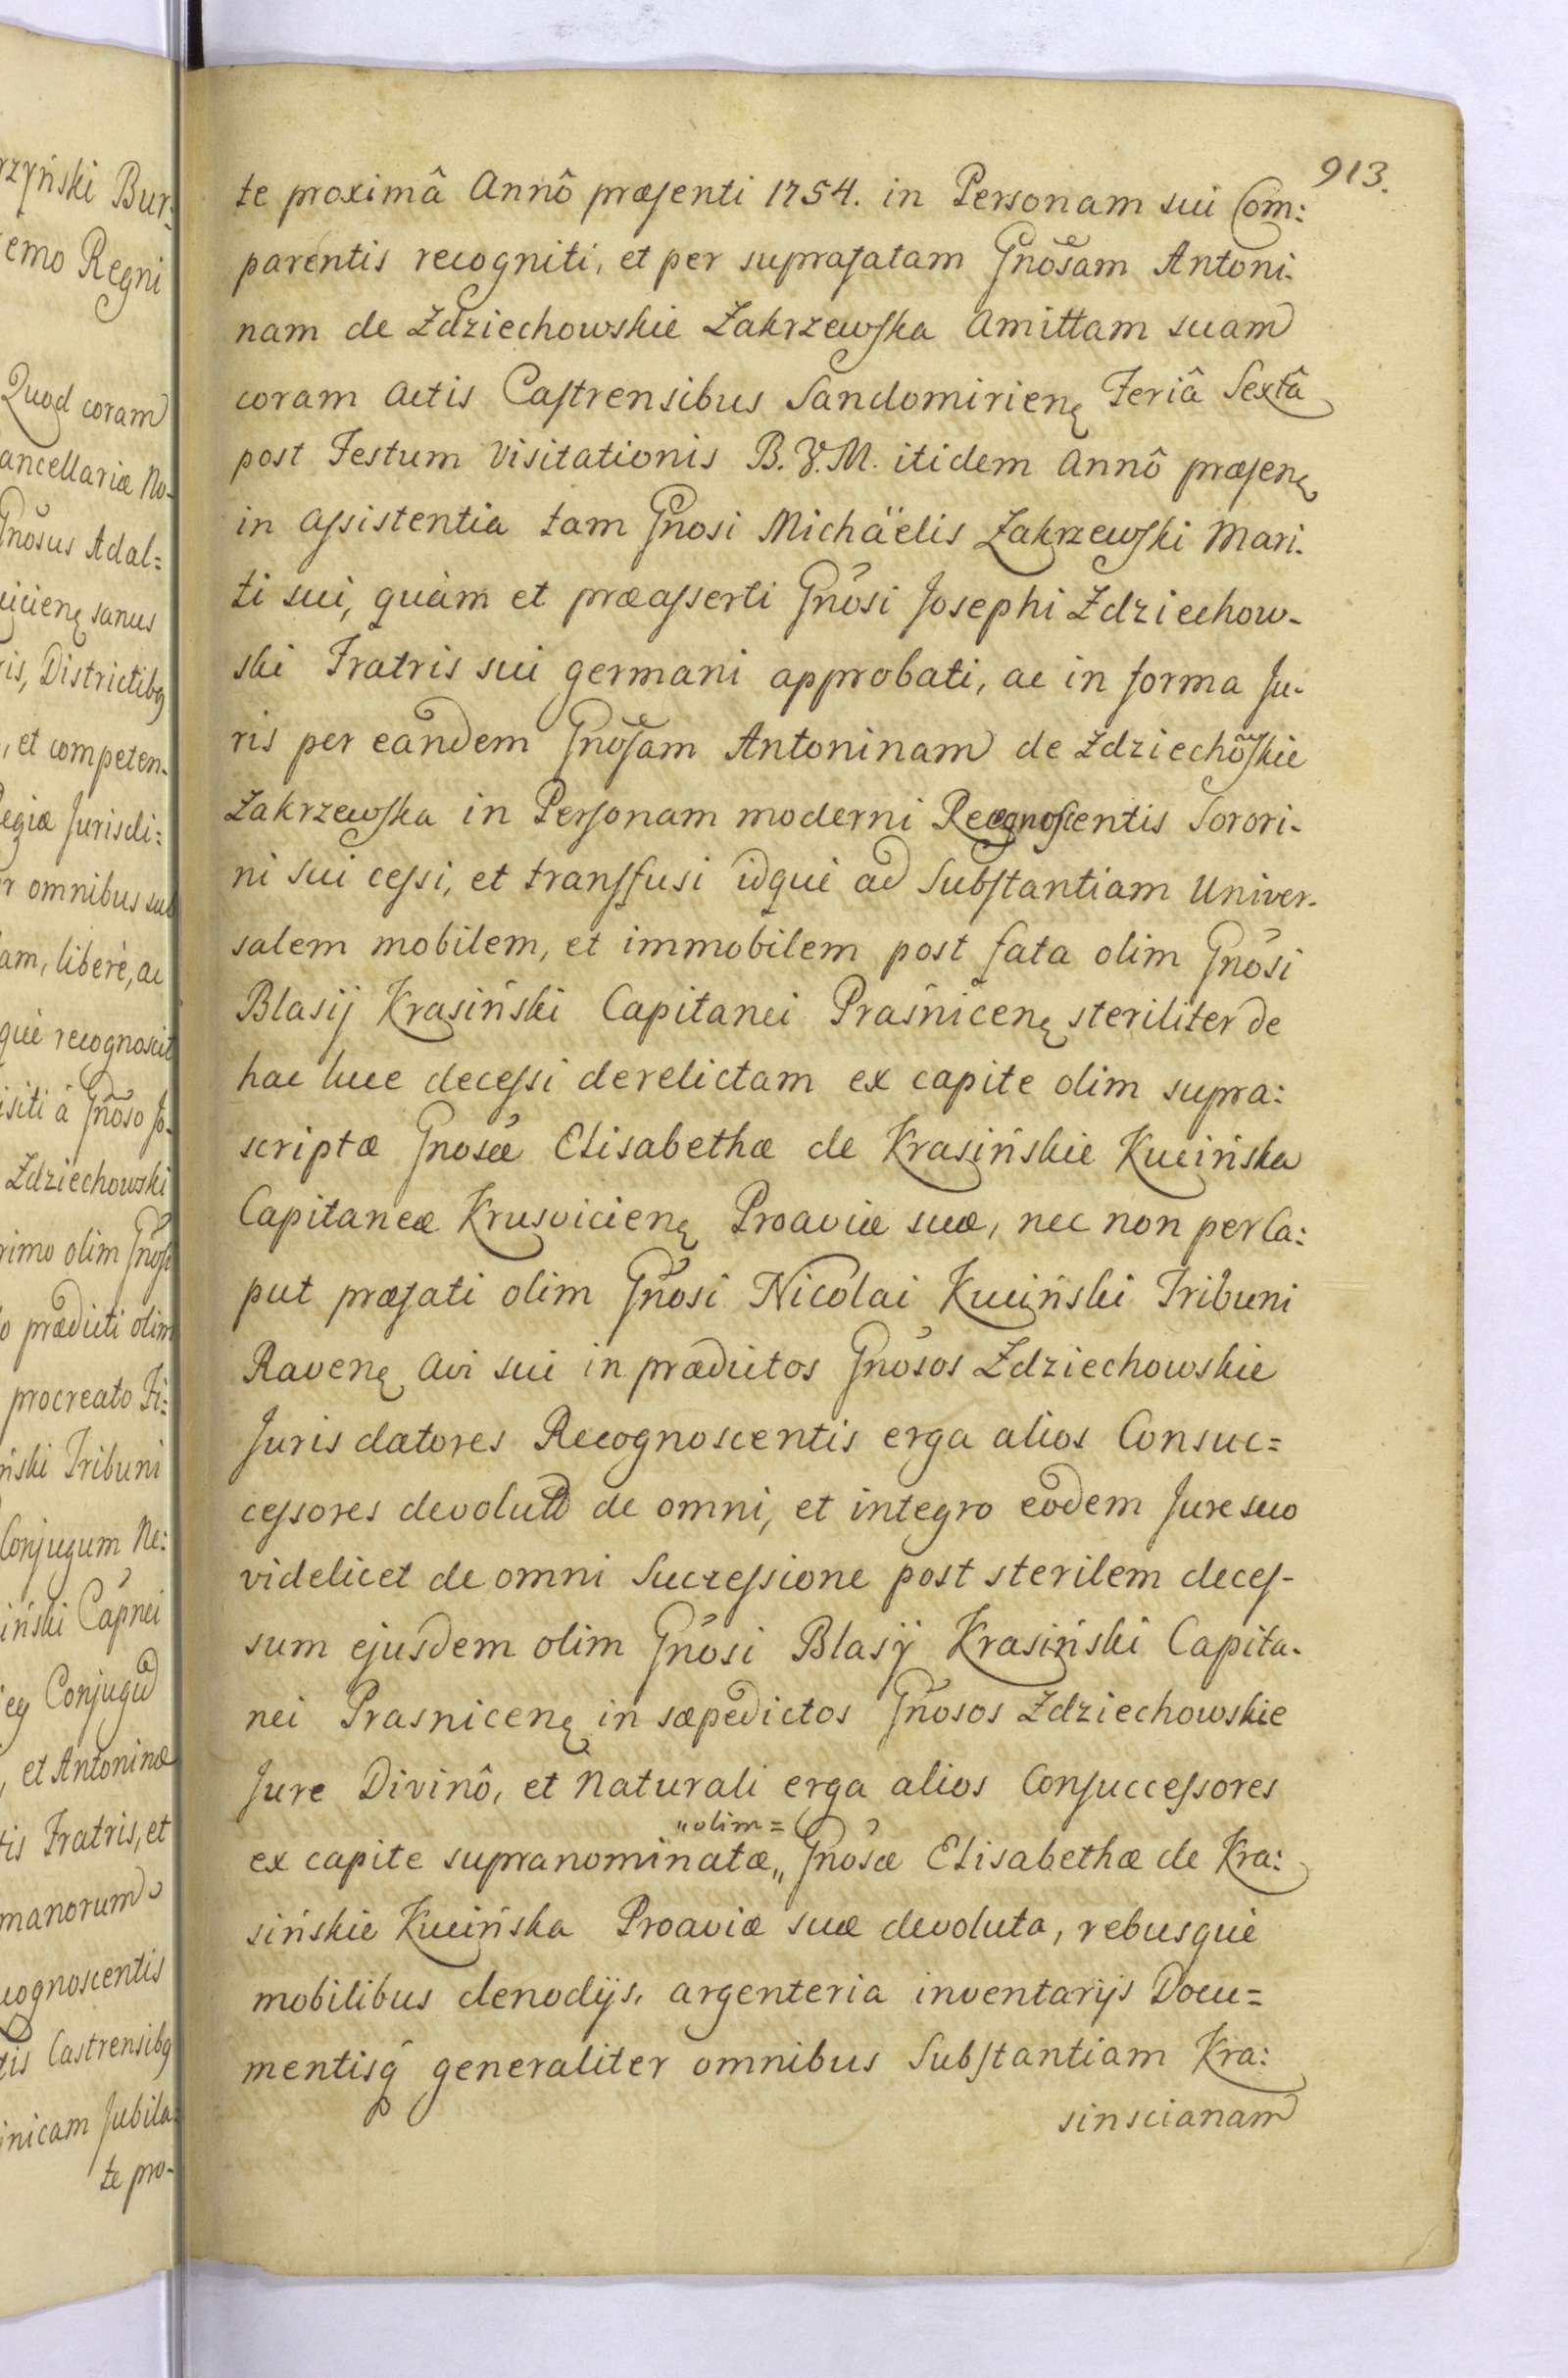 rzyński Bur:
emo Regni
Quod coram
ancellariæ No-
Gnõsus Adal=
iicienę sanus
is, Districtibq
, et competen-
Regiæ Jurisdi:
r omnibus sub
am, liberè, ac
què recognoscit
isiti à Gnõso Jo-
Zdziechowski
rimo olim Gnõsi
o prædicti olim
procreato Fi:
iński Tribuni
Conjugum Ne:
iński Capñei
Conjugũ
, et Antoninæ
tis Fratris, et
manorum
cognoscentis
tis Castrensibq
inicam Jubila
te pro-
913.
te proximâ Annô præsenti 1754. in Personam sui Com:
parentis recogniti, et per suprafatam Gnõsam Antoni-
nam de Zdziechowskie Zakrzewska Amittam suam
coram Actis Castrensibus Sandomirienę Feriâ Sextâ
post Festum Visitationis B. V. M. itidem Annô præsenę
in assistentia tam Gnosi Michäelis Zakrzewski Mari-
ti sui, quàm et præasserti Gnõsi Josephi Zdziechow-
ski Fratris sui germani approbati, ac in forma Ju-
ris per eandem Gnõsam Antoninam de Zdziechõskie
Zakrzewska in Personam moderni Recognoscentis Sorori-
ni sui cessi, et transfusi idquè ad Substantiam Univer-
salem mobilem, et immobilem post fata olim Gnõsi
Blasij Krasiński Capitanei Praśnicenę steriliter de
hac luce decessi derelictam ex capite olim supra:
scriptæ Gnosæ Elisabethæ de Krasińskie Kucińska
Capitaneæ Krusvicienę Proaviæ suæ, nec non per Ca:
put præfati olim Gnõsi Nicolai Kuciński Tribuni
Ravenę Avi sui in prædictos Gnõsos Zdziechowskie
Juris datores Recognoscentis erga alios Consuc=
cessores devolut̃ de omni, et integro eodem Jure suo
videlicet de omni Successione post sterilem deces-
sum ejusdem olim Gnõsi Blasij Krasiński Capita-
nei Prasnicenę in sæpedictos Gnõsos Zdziechowskie
Jure Divinô, et Naturali erga alios Consuccessores
"olim=
ex capite supranominatæ,, Gnõsæ Elisabethæ de Kra:
sińskie Kucińska Proaviæ suæ devoluta, rebusquè
mobilibus clenodijs, argenteria inventarijs Docu=
mentisq̃ generaliter omnibus Substantiam Kra:
sinscianam